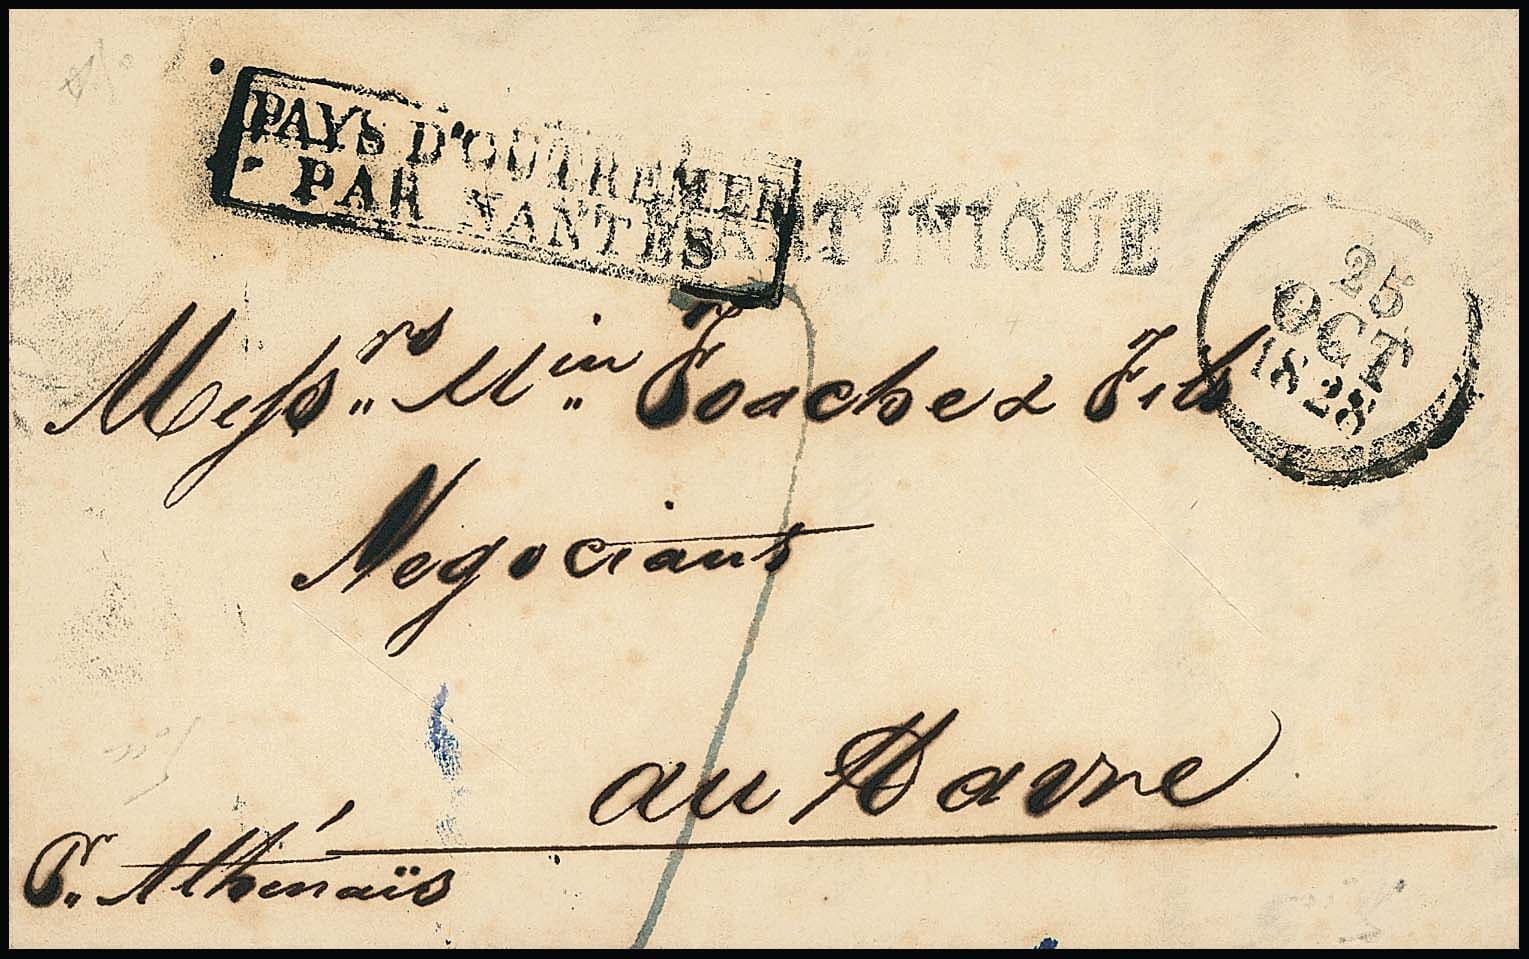 PAYS D'OUTREMER
PAR NANTES
MARTINIQUE
25
OCT
1828
Mess.rs M.in Foache & Fils
Negocians
au Havre
P.r Athénaïs